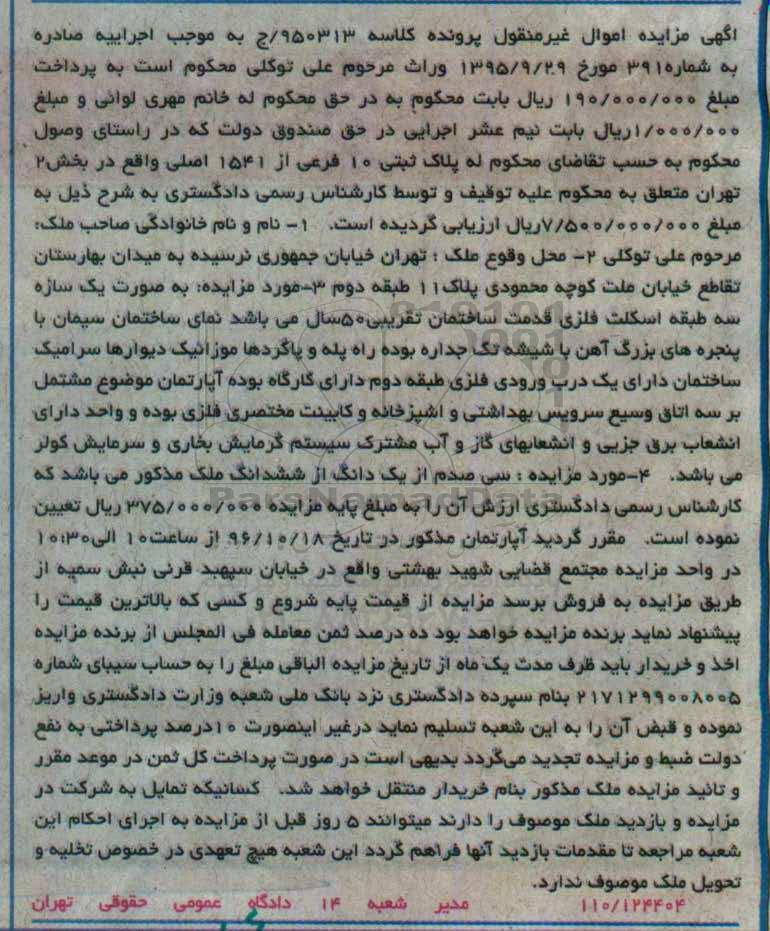 آگهی مزایده اموال غیرمنقول پرونده کلاسه ۹۵۰۳۱۳/ج به موجب اجراییه صادره
به شماره۳۹۱ مورخ ۱۳۹۵/۹/۲۹ وراث مرحوم علی توکلی محکوم است به پرداخت
مبلغ ۱۹۰/۰۰۰/۰۰۰ ریال بابت محکوم به در حق محکوم له خانم مهری لوائی و مبلغ
۱/۰۰۰/۰۰۰ریال بابت نیم عشر اجرایی در حق صندوق دولت که در راستای وصول
محکوم به حسب تقاضای محکوم له پلاک ثبتی ۱۰ فرعی از ۱۵۴۱ اصلی واقع در بخش۲
تهران متعلق به محکوم علیه توقیف و توسط کارشناس رسمی دادگستری به شرح ذیل به
مبلغ ۷/۵۰۰/۰۰۰/۰۰۰ریال ارزیابی گردیده است. ۱- نام و نام خانوادگی صاحب ملک:
مرحوم علی توکلی ۲- محل وقوع ملک : تهران خیابان جمهوری نرسیده به میدان بهارستان
تقاطع خیابان ملت کوچه محمودی پلاک۱۱ طبقه دوم ۳-مورد مزایده: به صورت یک سازه
سه طبقه اسکلت فلزی قدمت ساختمان تقریبی۵۰سال می باشد نمای ساختمان سیمان با
پنجره های بزرگ آهن با شیشه تک جداره بوده راه پله و پاگردها موزائیک دیوارها سرامیک
ساختمان دارای یک درب ورودی فلزی طبقه دوم دارای کارگاه بوده آپارتمان موضوع مشتمل
بر سه اتاق وسیع سرویس بهداشتی و اشپزخانه و کابینت مختصری فلزی بوده و واحد دارای
انشعاب برق جزیی و انشعابهای گاز و آب مشترک سیستم گرمایش بخاری و سرمایش کولر
می باشد. ۴-مورد مزایده : سی صدم از یک دانگ از ششدانگ ملک مذکور می باشد که
کارشناس رسمی دادگستری ارزش آن را به مبلغ پایه مزایده ۳۷۵/۰۰۰/۰۰۰ ریال تعیین
نموده است. مقرر گردید آپارتمان مذکور در تاریخ ۹۶/۱۰/۱۸ از ساعت۱۰ الی۱۰:۳۰
در واحد مزایده مجتمع قضایی شهید بهشتی واقع در خیابان سپهبد قرنی نبش سمیه از
طریق مزایده به فروش برسد مزایده از قیمت پایه شروع و کسی که بالاترین قیمت را
پیشنهاد نماید برنده مزایده خواهد بود ده درصد ثمن معامله فی المجلس از برنده مزایده
اخذ و خریدار باید ظرف مدت یک ماه از تاریخ مزایده الباقی مبلغ را به حساب سیبای شماره
۲۱۷۱۲۹۹۰۰۸۰۰۵ بنام سپرده دادگستری نزد بانک ملی شعبه وزارت دادگستری واریز
نموده و قبض آن را به این شعبه تسلیم نماید درغیر اینصورت ۱۰درصد پرداختی به نفع
دولت ضبط و مزایده تجدید می‌گردد بدیهی است در صورت پرداخت کل ثمن در موعد مقرر
و تائید مزایده ملک مذکور بنام خریدار منتقل خواهد شد. کسانیکه تمایل به شرکت در
مزایده و بازدید ملک موصوف را دارند میتوانند ۵ روز قبل از مزایده به اجرای احکام این
شعبه مراجعه تا مقدمات بازدید آنها فراهم گردد این شعبه هیچ تعهدی در خصوص تخلیه و
تحویل ملک موصوف ندارد.
۱۱۰/۱۲۴۴۰۴ مدیر شعبه ۱۴ دادگاه عمومی حقوقی تهران
ParsNamadData